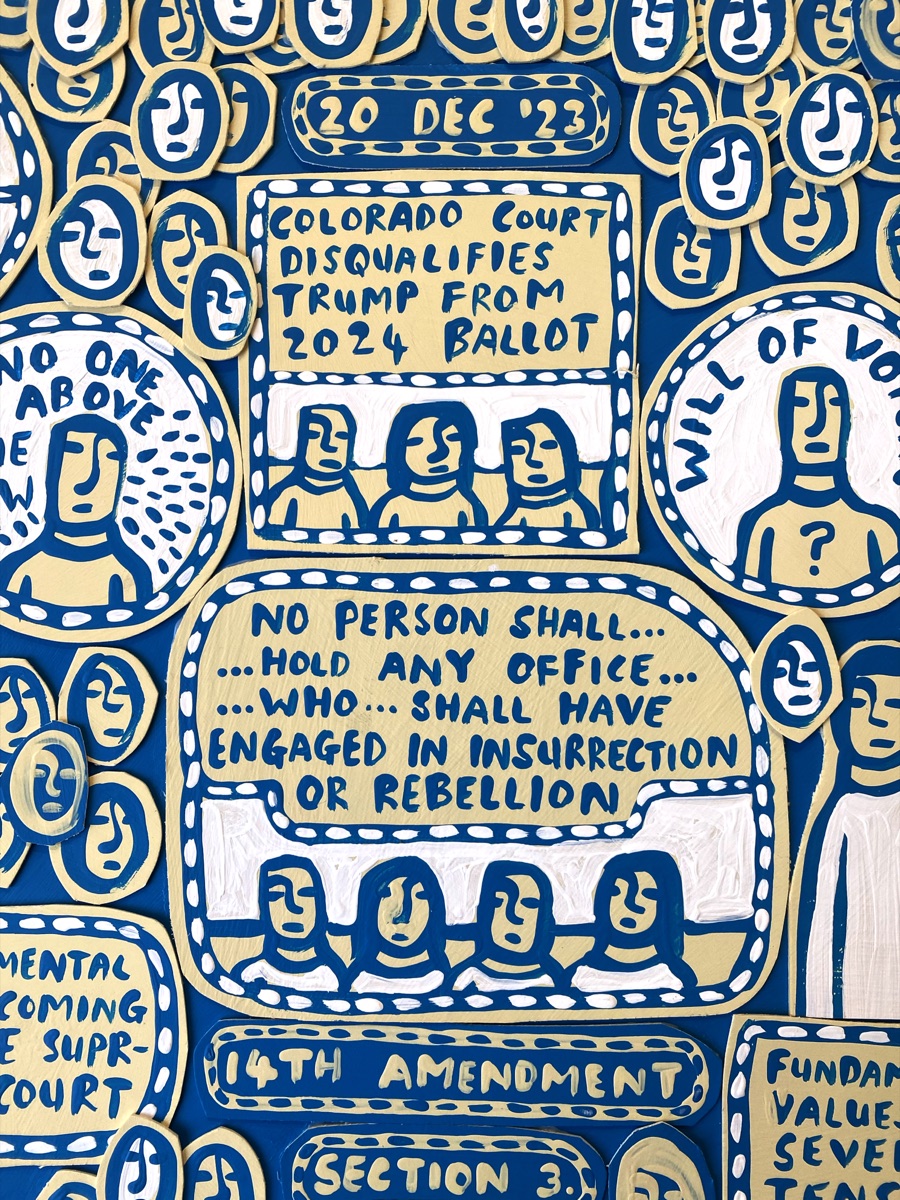 20 DEC '23
COLORADO COURT
DISQUALIFIES
TRUMP FROM
2024 BALLOT
NO ONE
ABOVE
WILL OF
NO PERSON SHALL...
...HOLD ANY OFFICE...
...WHO... SHALL HAVE
ENGAGED IN INSURRECTION
OR REBELLION
?
MENTAL
COMING
E SUPR-
COURT
14TH AMENDMENT
SECTION 3.
FUNDAM
VALUE
SEVE
TENC